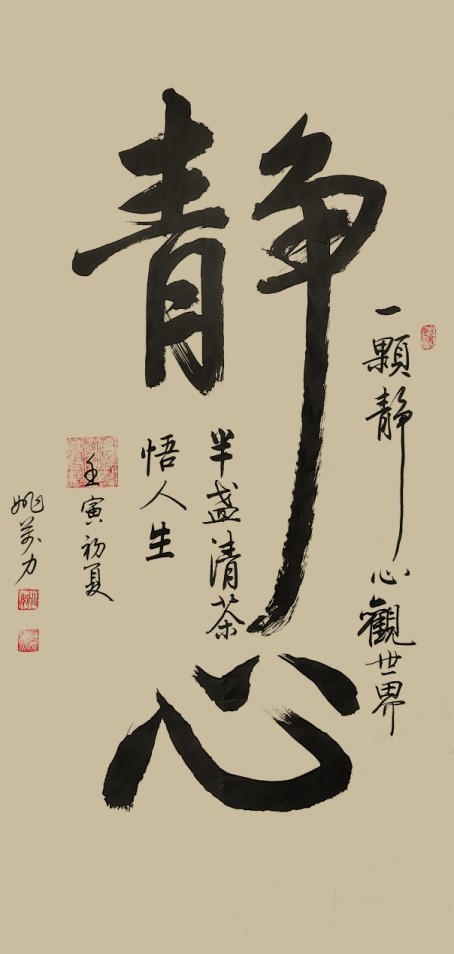 静心
一颗静心觀世界
半盏清茶
悟人生
壬寅初夏
姚万力